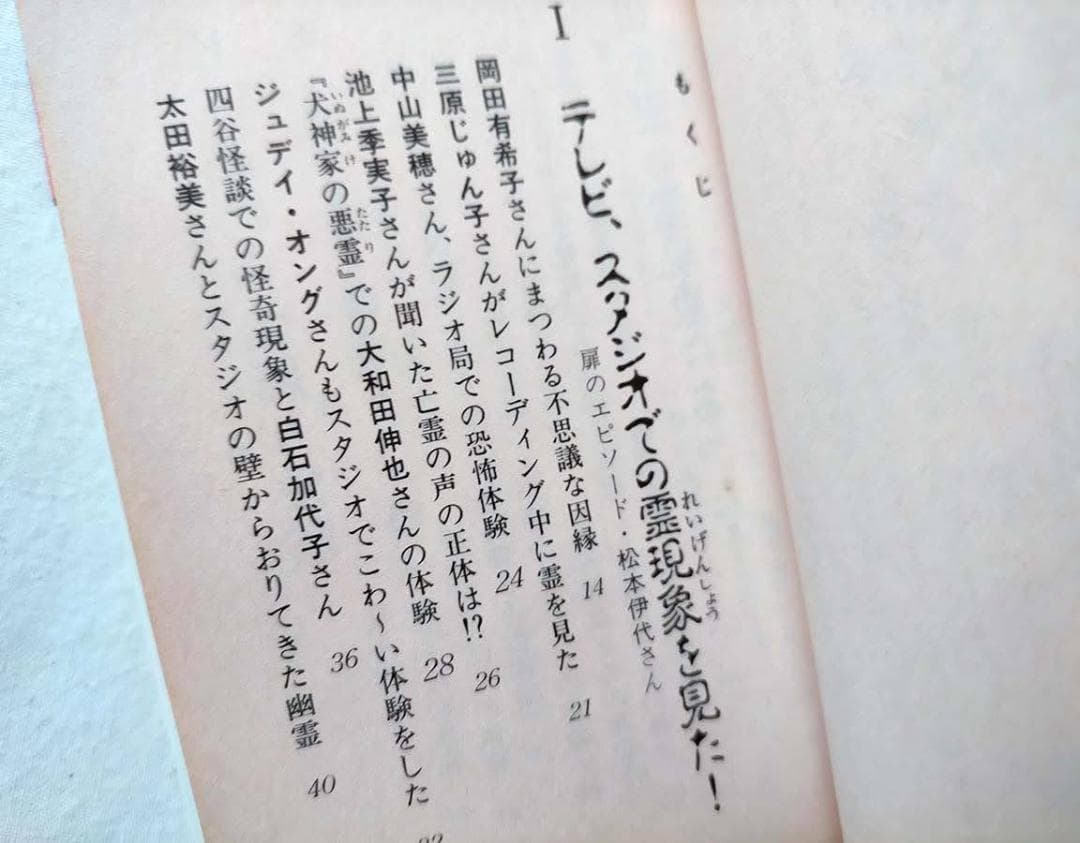 もくじ
I
れいげんしょう
テレビ、スタジオでの霊現象を見た!
扉のエピソード・松本伊代さん
岡田有希子さんにまつわる不思議な因縁 14
三原じゅん子さんがレコーディング中に霊を見た 21
中山美穂さん、ラジオ局での恐怖体験 24
池上季実子さんが聞いた亡霊の声の正体は!? 26
いぬがみけ たたり
『犬神家の悪霊』での大和田伸也さんの体験 28
ジュデイ・オングさんもスタジオでこわ〜い体験をした
四谷怪談での怪奇現象と白石加代子さん 36
太田裕美さんとスタジオの壁からおりてきた幽霊 40